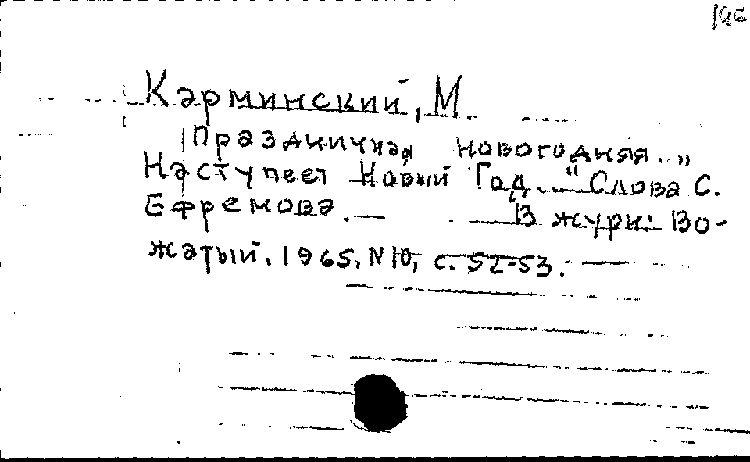 Карминский, М.
Праздничная новогодняя. „
Наступает Новый Год..." Слова С.
Ефремова. — В журн: Во-
жатый. 1965, N 10, с. 52-53.